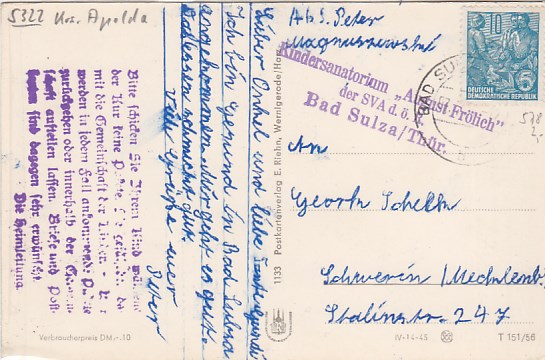 5322 Krs. Apolda
Abs. Peter
Magnuszewski
Kindersanatorium „August Frölich"
der SVA d. ö.
Bad Sulza/Thür.
10
DEUTSCHE
DEMOKRATISCHE REPUBLIK
BAD SU
578
2,-
Lieber Onkel und liebe
Ich bin gesund in Bad Sulza
angekommen. Mir geht es gut.
Das Essen schmeckt gut.
Viele Grüße euer
Peter
Bitte schicken Sie Ihrem Kind während
der Kur keine
mit die Gemeinschaft der
werden in jedem Fall ankommende
zurückgehen oder innerhalb der
austeilen lassen. Briefe und Post-
sind dagegen sehr erwünscht.
Die Heimleitung.
1133 Postkartenverlag E. Riehn, Wernigerode/Harz
An
Georg
Schwerin/Mecklenb.
Stalinstr. 247
Verbraucherpreis DM -.10
IV-14-45
T 151/56